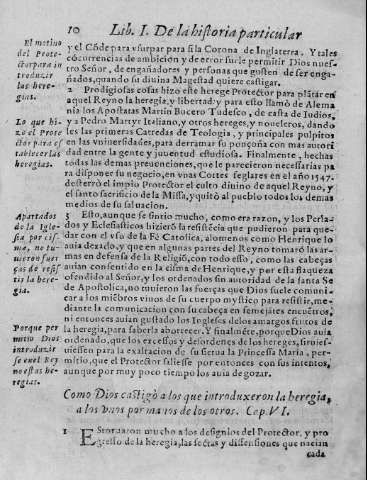 10 Lib. I. De la historia particular
El motivo del Protector para introduzir las heregias.
y el Cõde para vsurpar para si la Corona de Inglaterra. Y tales
cõcorrencias de ambicion y de error suele permitir Dios nues-
tro Señor, de engañadores y personas que gusten de ser enga-
ñados, quando su divina Magestad quiere castigar.
2 Prodigiosas cosas hizo este herege Protector para plãtar en
aquel Reyno la heregia, y libertad: y para esto llamò de Alema
nia los Apostatas Martin Bucero Tudesco, de casta de Iudios,
Lo que hizo el Protector para establecer las heregias.
y a Pedro Martyr Italiano, y otros hereges, y noveleros, dando
les las primeras Catredas de Teologia, y principales pulpitos
en las vniversidades, para derramar su ponçoña con mas autori
dad entre la gente y juventud estudiosa. Finalmente, hechas
todas las demas prevenciones, que le parecieron necessarias pa
ra disponer su negocio, en vnas Cortes seglares en el año 1547.
desterrò el impio Protector el culto divino de aquel Reyno, y
el santo sacrificio de la Missa, y quitò al pueblo todos los demas
medios de su salvacion.
Apartados de la Iglesia por cisma, no tuvieron fuerças de resistir la heregia.
3 Esto, aunque se sintio mucho, como era razon, y los Perla-
dos y Eclesiasticos hizierõ la resistẽcia que pudieron para que-
dar con el vso de la Fè Catolica, alomenos como Henrique lo
auia dexado, y que en algunas partes del Reyno tomarõ las ar-
mas en defensa de la Religiõ, con todo esso, como las cabeças
auian consentido en la cisma de Henrique, y por esta flaqueza
ofendido al Señor, y los ordenados sin autoridad de la santa Se
de Apostolica, no tuvieron las fuerças que Dios suele comuni-
car a los miẽbros vivos de su cuerpo mystico para resistir, me-
diante la comunicacion con su cabeça en semejãtes encuẽtros,
ni entonces auian gustado los Ingleses de los amargos frutos de
Porque permitio Dios introduzirse en el Reyno estas heregias.
la heregia, para saberla aborrecer. Y finalmẽte, porque Dios auia
ordenado, que los excessos y desordenes de los hereges, sirvies-
uiessen para la exaltacion de su sierua la Princessa Maria, per-
mitio, que el Protector saliesse por entonces con sus intentos,
aunque por muy poco tiempo los auia de gozar.
Como Dios castigò a los que introduxeron la heregia,
a los vnos por manos de los otros. Cap. VI.
1 EStorvaron mucho a los designios del Protector, y pro
gresso de la heregia, las sectas y dissensiones que nacian
cada